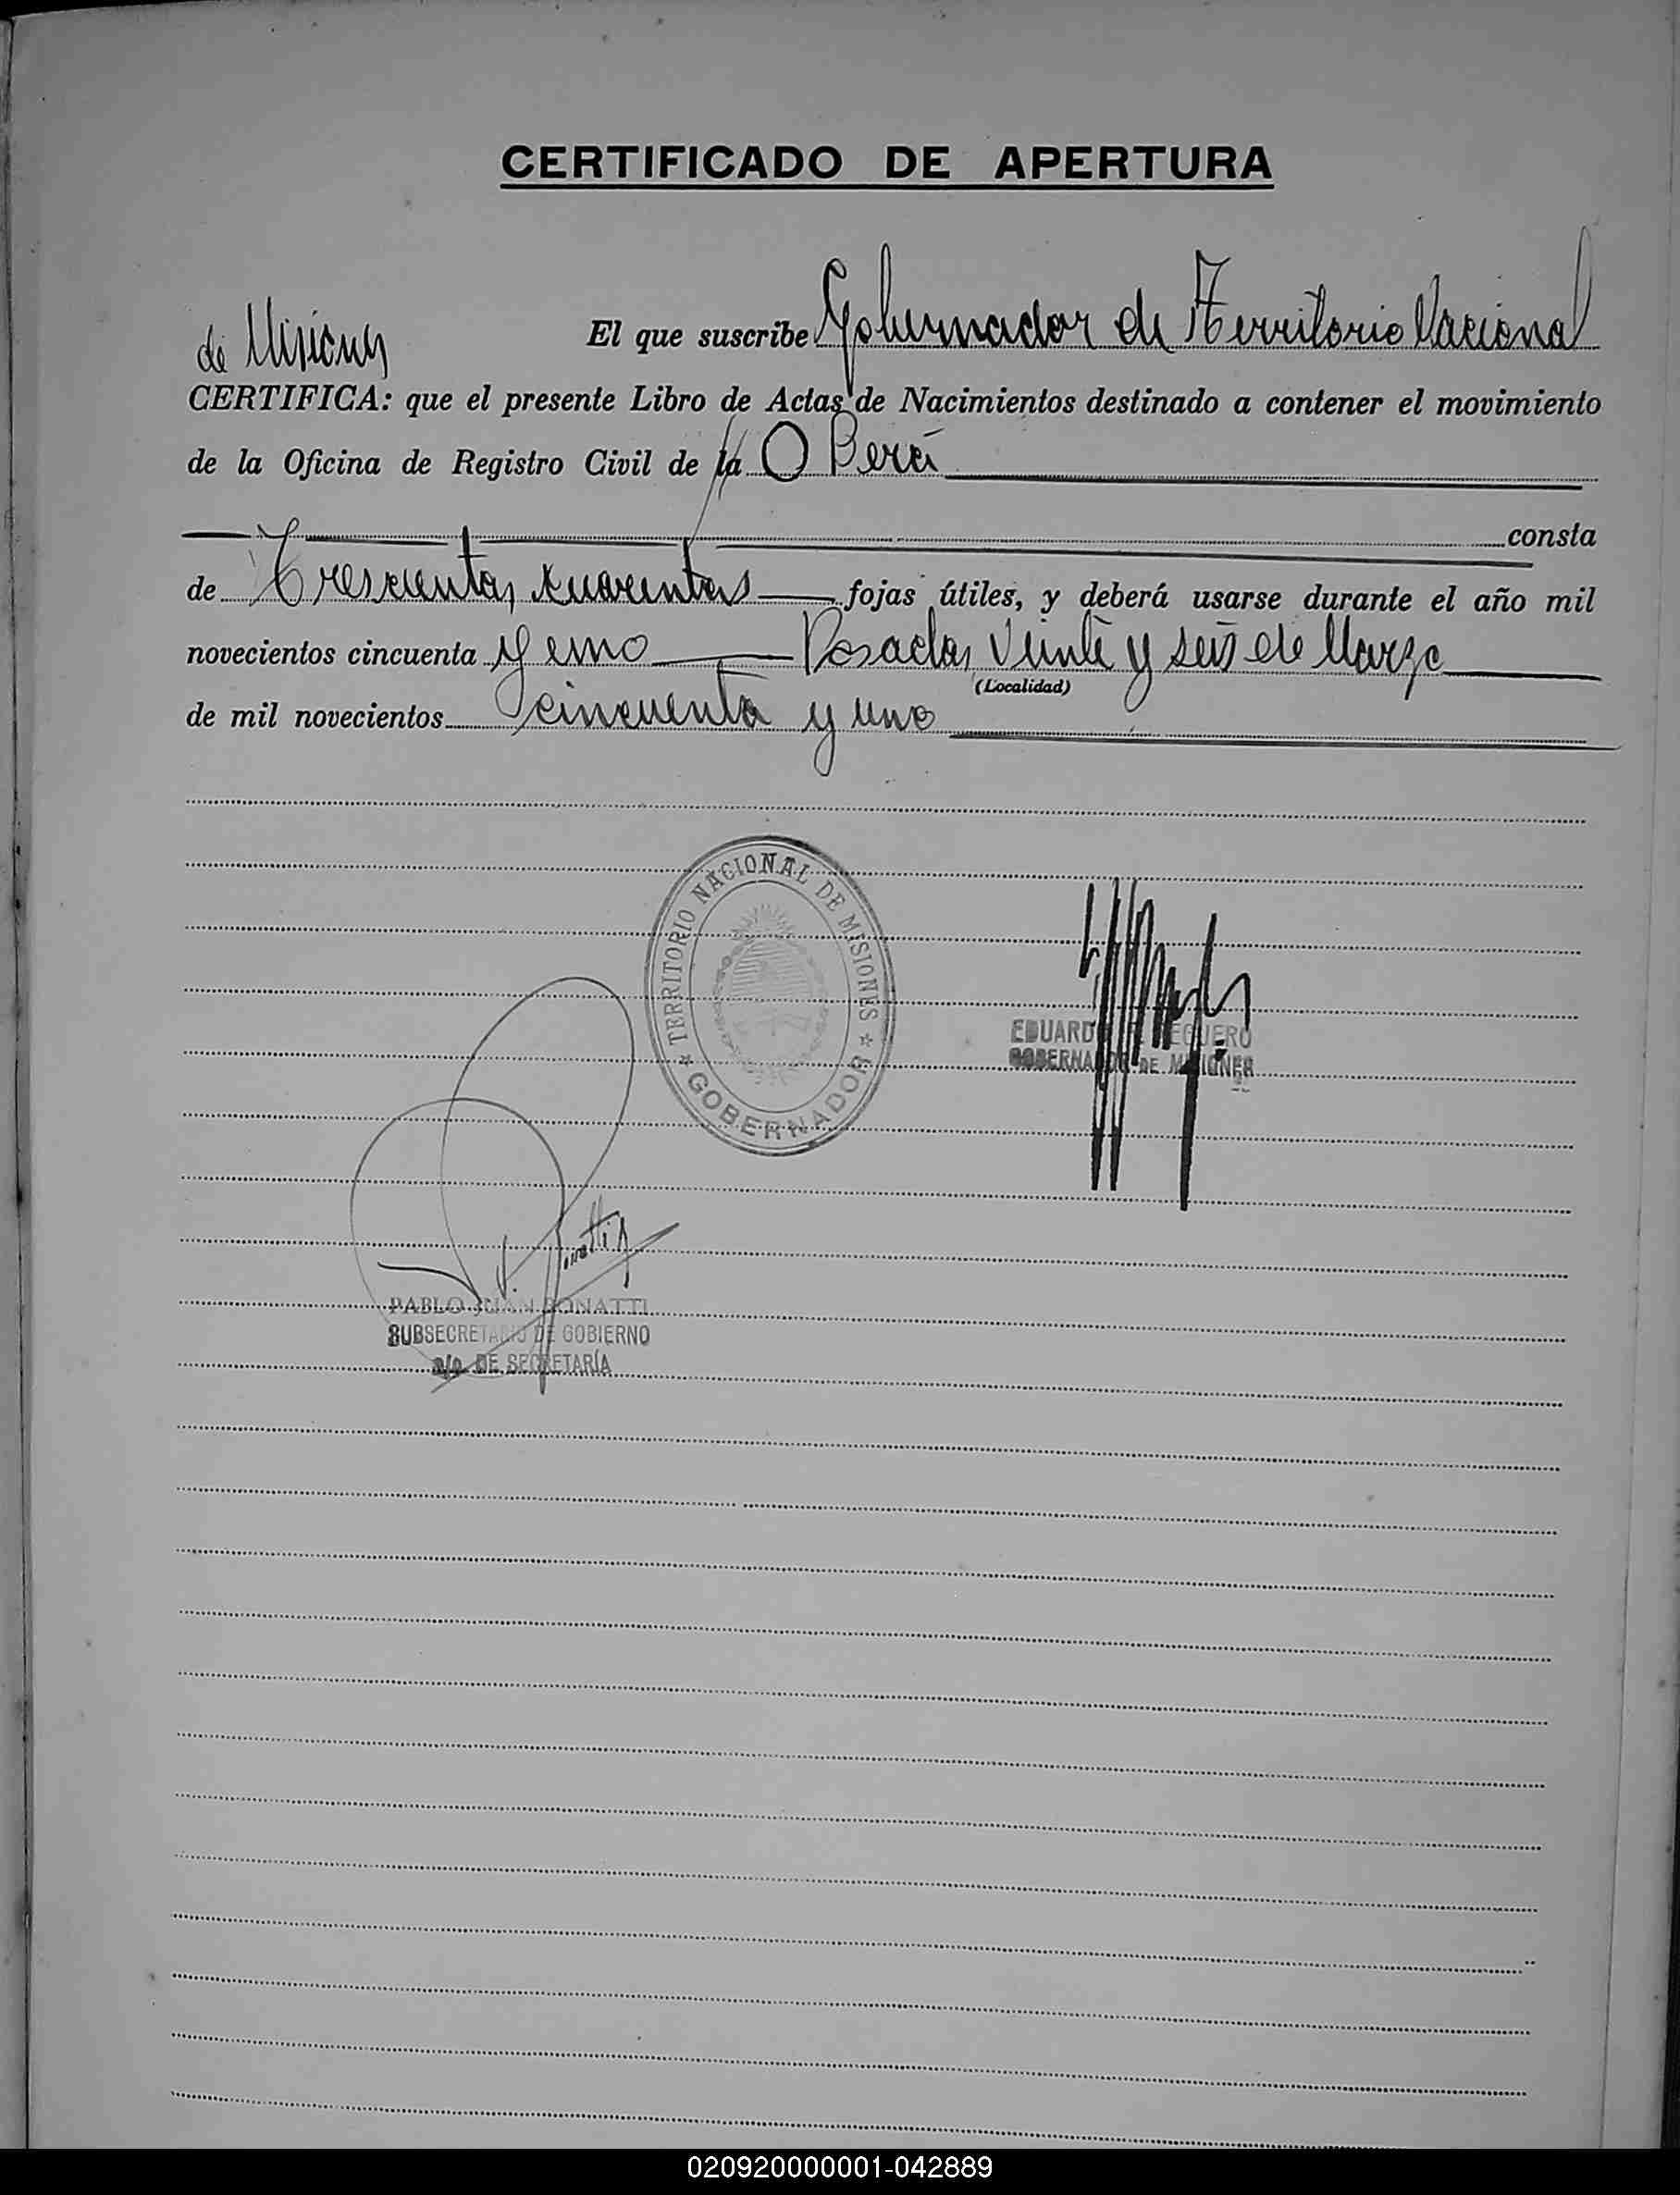 CERTIFICADO DE APERTURA
El que suscribe Gobernador de Territorio Nacional
de Misiones
CERTIFICA: que el presente Libro de Actas de Nacimientos destinado a contener el movimiento
de la Oficina de Registro Civil de la O Berá
consta
de Trescientas cuarentas fojas útiles, y deberá usarse durante el año mil
novecientos cincuenta y uno Posadas, Veinte y seis de Marzo
(Localidad)
de mil novecientos cincuenta y uno
TERRITORIO NACIONAL DE MISIONES
GOBERNADOR
EDUARD EGUERO
GOBERNADOR DE MISIONES
PABLO JUAN BONATTI
SUBSECRETARIO DE GOBIERNO
a/c. DE SECRETARÍA
020920000001-042889